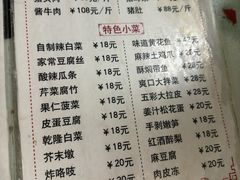 酱牛肉 ￥108元/斤 猪肚 ￥88元/斤
特色小菜
自制辣白菜 ￥18元 味道黄花鱼
家常豆腐丝 ￥18元 麻辣土鸡爪
酸辣瓜条 ￥18元 酥焖带鱼 ￥28元
芹菜腐竹 ￥18元 爽口大拌菜 ￥18元
果仁菠菜 ￥18元 五彩大拉皮 ￥20元
皮蛋豆腐 ￥18元 姜汁松花蛋 ￥20元
乾隆白菜 ￥18元 手剥嫩笋 ￥18元
芥末墩 ￥18元 红酒醉梨 ￥18元
炸咯吱 ￥20元 麻豆腐 ￥20元
肉皮冻 ￥20元